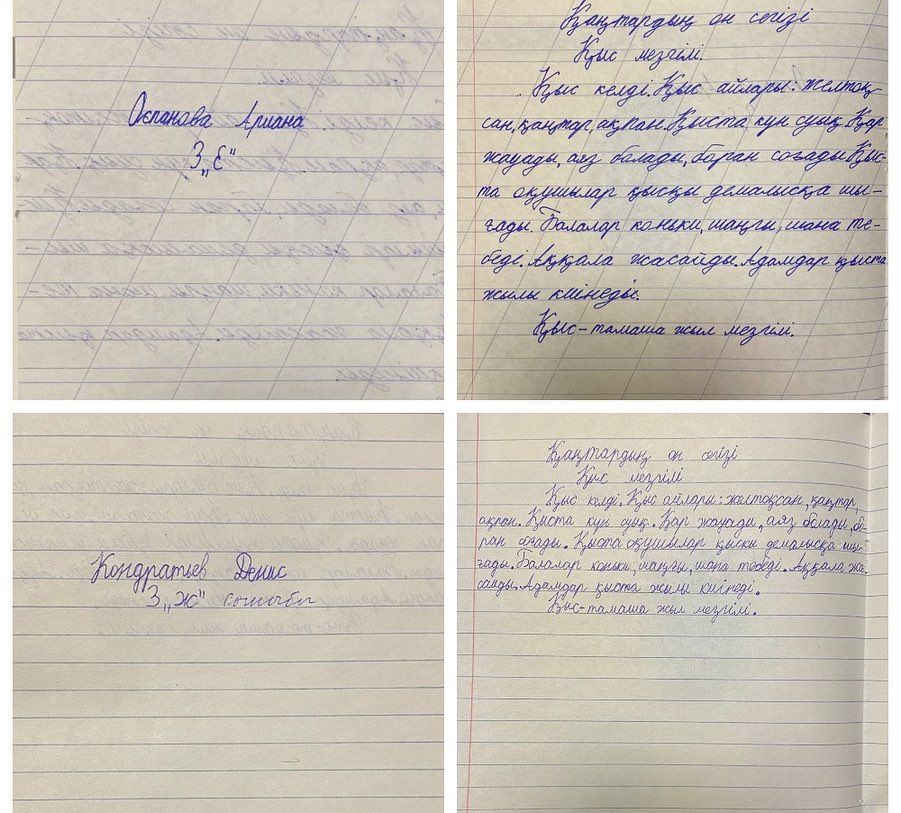 Оспанова Ариана
3 "Е"
Қаңтардың он сегізі
Қыс мезгілі.
Қыс келді. Қыс айлары: желтоқ-
сан, қаңтар, ақпан. Қыста күн суық. Қар
жауады, аяз болады, боран соғады. Қыс-
та оқушылар қысқы демалысқа шы-
ғады. Балалар коньки, шаңғы, шана те-
беді. Аққала жасайды. Адамдар қыста
жылы киінеді.
Қыс-тамаша жыл мезгілі.
Кондратьев Денис
3 "Ж" сыныбы
Қаңтардың он сегізі
Қыс мезгілі
Қыс келді. Қыс айлары: желтоқсан, қаңтар,
ақпан. Қыста күн суық. Қар жауады, аяз болады, бо-
ран соғады. Қыста оқушылар қыскы демалысқа шы-
ғады. Балалар коньки, шаңғы, шана тебеді. Аққала жа-
сайды. Адамдар қыста жылы киінеді.
Қыс-тамаша жыл мезгілі.